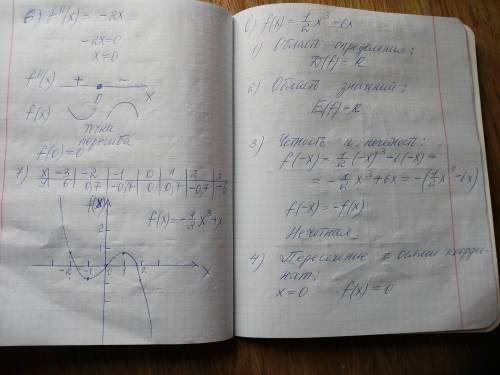 6) f''(x) = -2x
-2x=0
x=0
f''(x) + -
0 x
f(x)
точка
перегиба
f(0)=0
7) x -3 -2 -1 0 1 2 3
y 6 0,7 -0,7 0 0,7 -0,7 -6
f(x)
f(x)=-1/3 x³+x
2
1
-2 -1 0 1 2 x
б) f(x) = 1/2 x³ - 6x
1) Область определения:
D(f)=R
2) Область значений:
E(f)=R
3) Четность и нечетность:
f(-x) = 1/2 (-x)³ - 6(-x) =
= -1/2 x³ + 6x = -(1/2 x³ - 6x)
f(-x) = -f(x)
Нечетная
4) Пересечение с осями коорди-
нат:
x=0 f(x)=0